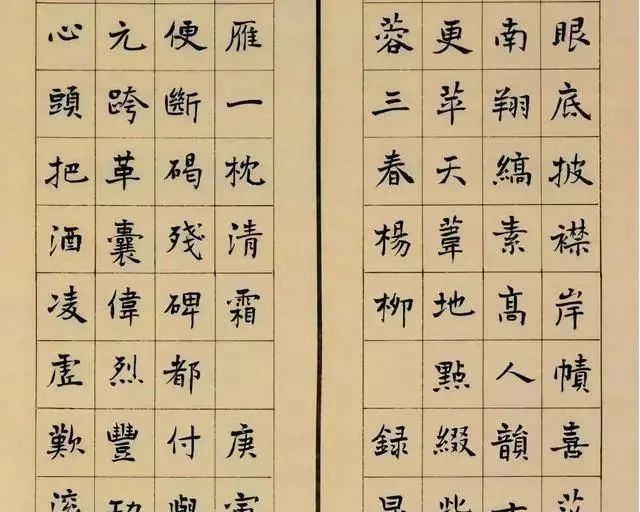 眼底披襟岸幘喜茫
南翔縞素高人韻士
更苹天葦地點綴些
蓉三春楊柳 録昆
雁一枕清霜 庚寅
便斷碣殘碑都付與
元跨革囊偉烈豐功
心頭把酒凌虛歎滾